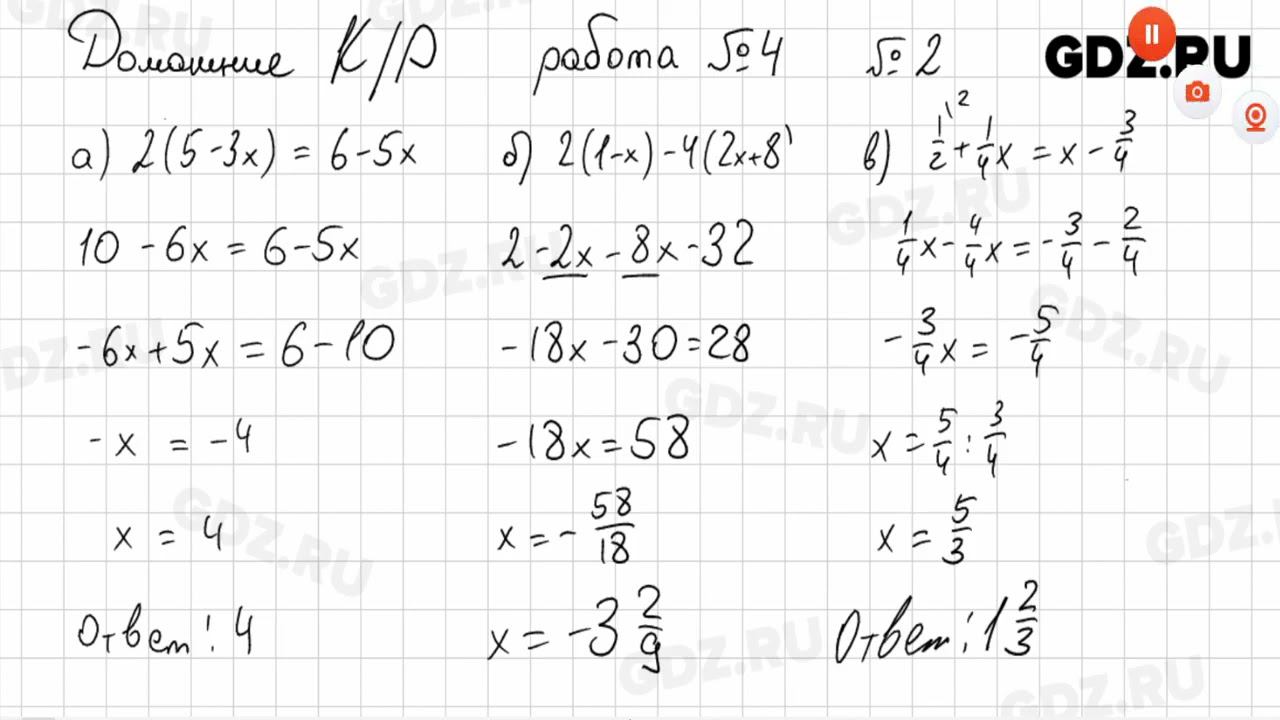 Домашние К/Р работа №4 №2
GDZ.RU
а) 2(5-3x) = 6-5x
10 - 6x = 6-5x
-6x+5x = 6-10
-x = -4
x = 4
Ответ: 4
б) 2(1-x)-4(2x+8)
2-2x-8x-32
-18x-30=28
-18x=58
x=-58/18
x=-3 2/9
в) 1/2+1/4x = x - 3/4
1/4x-4/4x=-3/4-2/4
-3/4x=-5/4
x=5/4:3/4
x=5/3
Ответ: 1 2/3